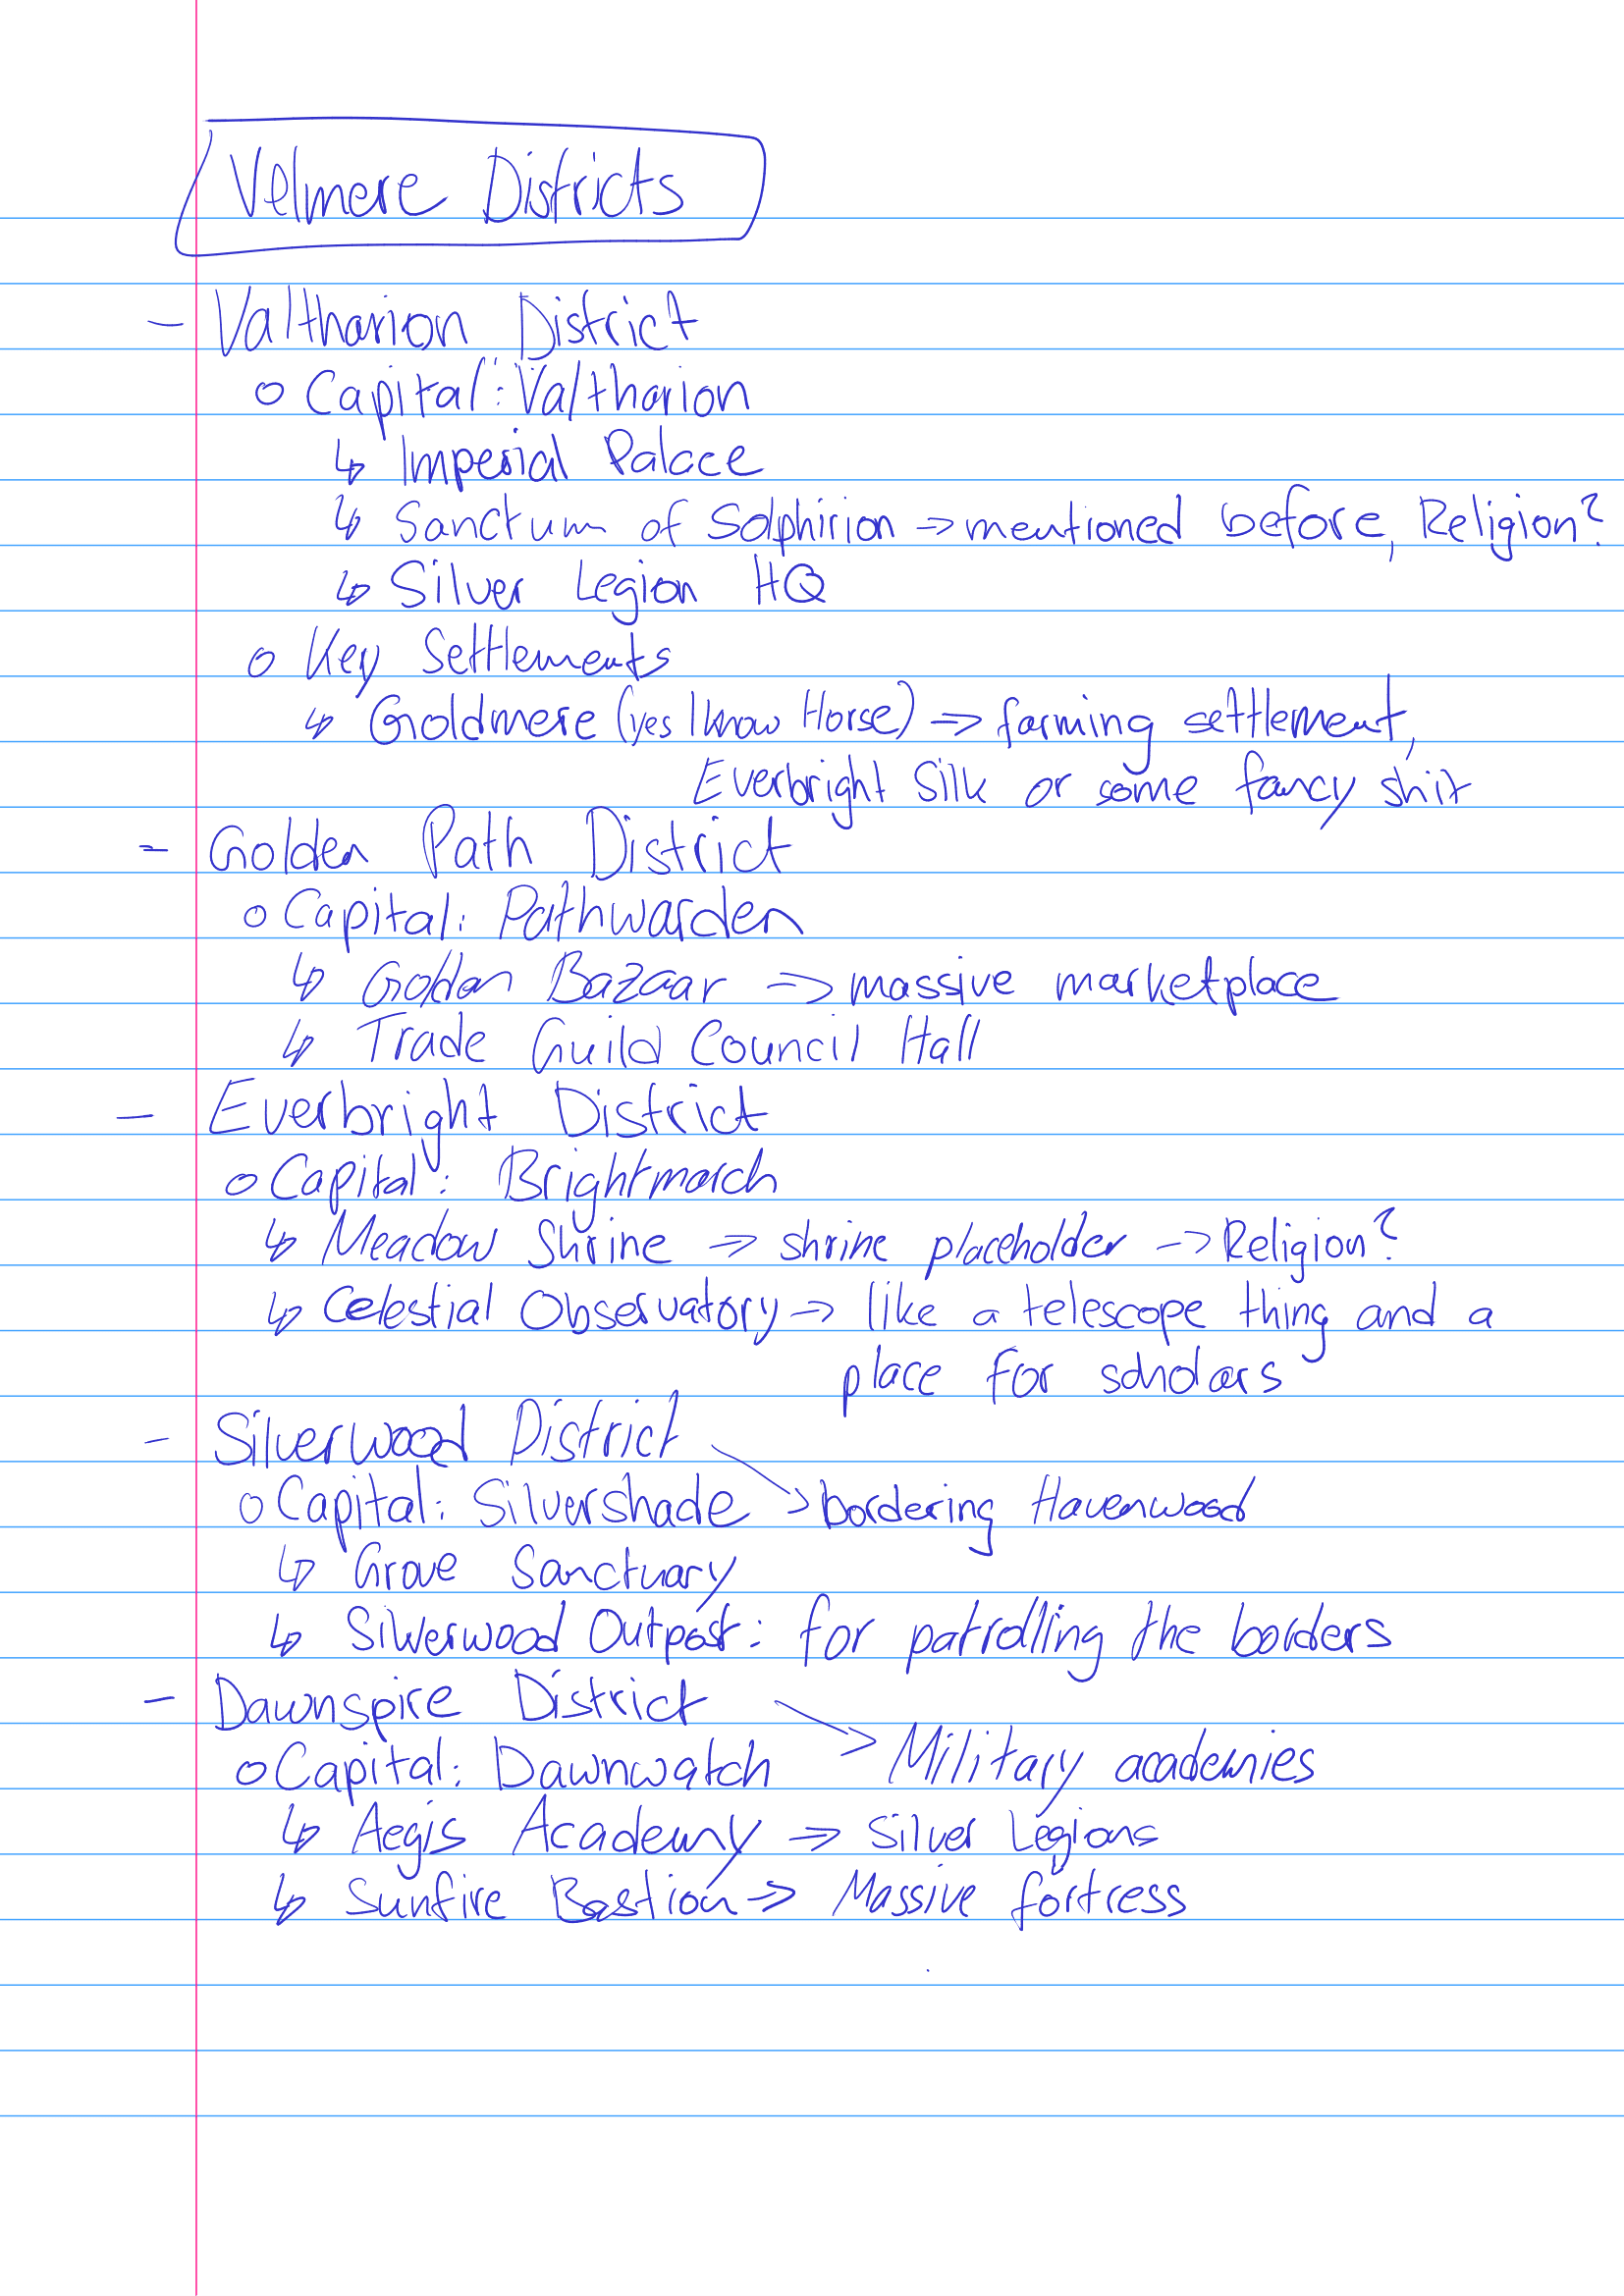 Velmere Districts
- Valtharion District
o Capital: Valtharion
↳ Imperial Palace
↳ Sanctum of Solphirion → mentioned before, Religion?
↳ Silver Legion HQ
o Key Settlements
↳ Goldmere (yes I know Horse) → farming settlement,
Everbright Silk or some fancy shit
- Golden Path District
o Capital: Pathwarden
↳ Golden Bazaar → massive marketplace
↳ Trade Guild Council Hall
- Everbright District
o Capital: Brightmarch
↳ Meadow Shrine → shrine placeholder → Religion?
↳ Celestial Observatory → like a telescope thing and a
place for scholars
- Silverwood District
o Capital: Silvershade → bordering Havenwood
↳ Grove Sanctuary
↳ Silverwood Outpost: for patrolling the borders
- Dawnspire District → Military academies
o Capital: Dawnwatch
↳ Aegis Academy → Silver Legions
↳ Sunfire Bastion → Massive fortress